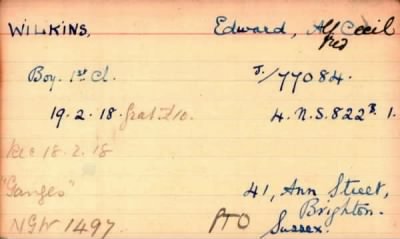 WILKINS, Edward, Alfred Cecil
Boy. 1st Cl. J/77084.
19.2.18. grat £10. 4.N.S.822B. 1.
Rec 18.2.18
"Ganges" 41, Ann Street,
Brighton.
NGW 1497. PTO Sussex.